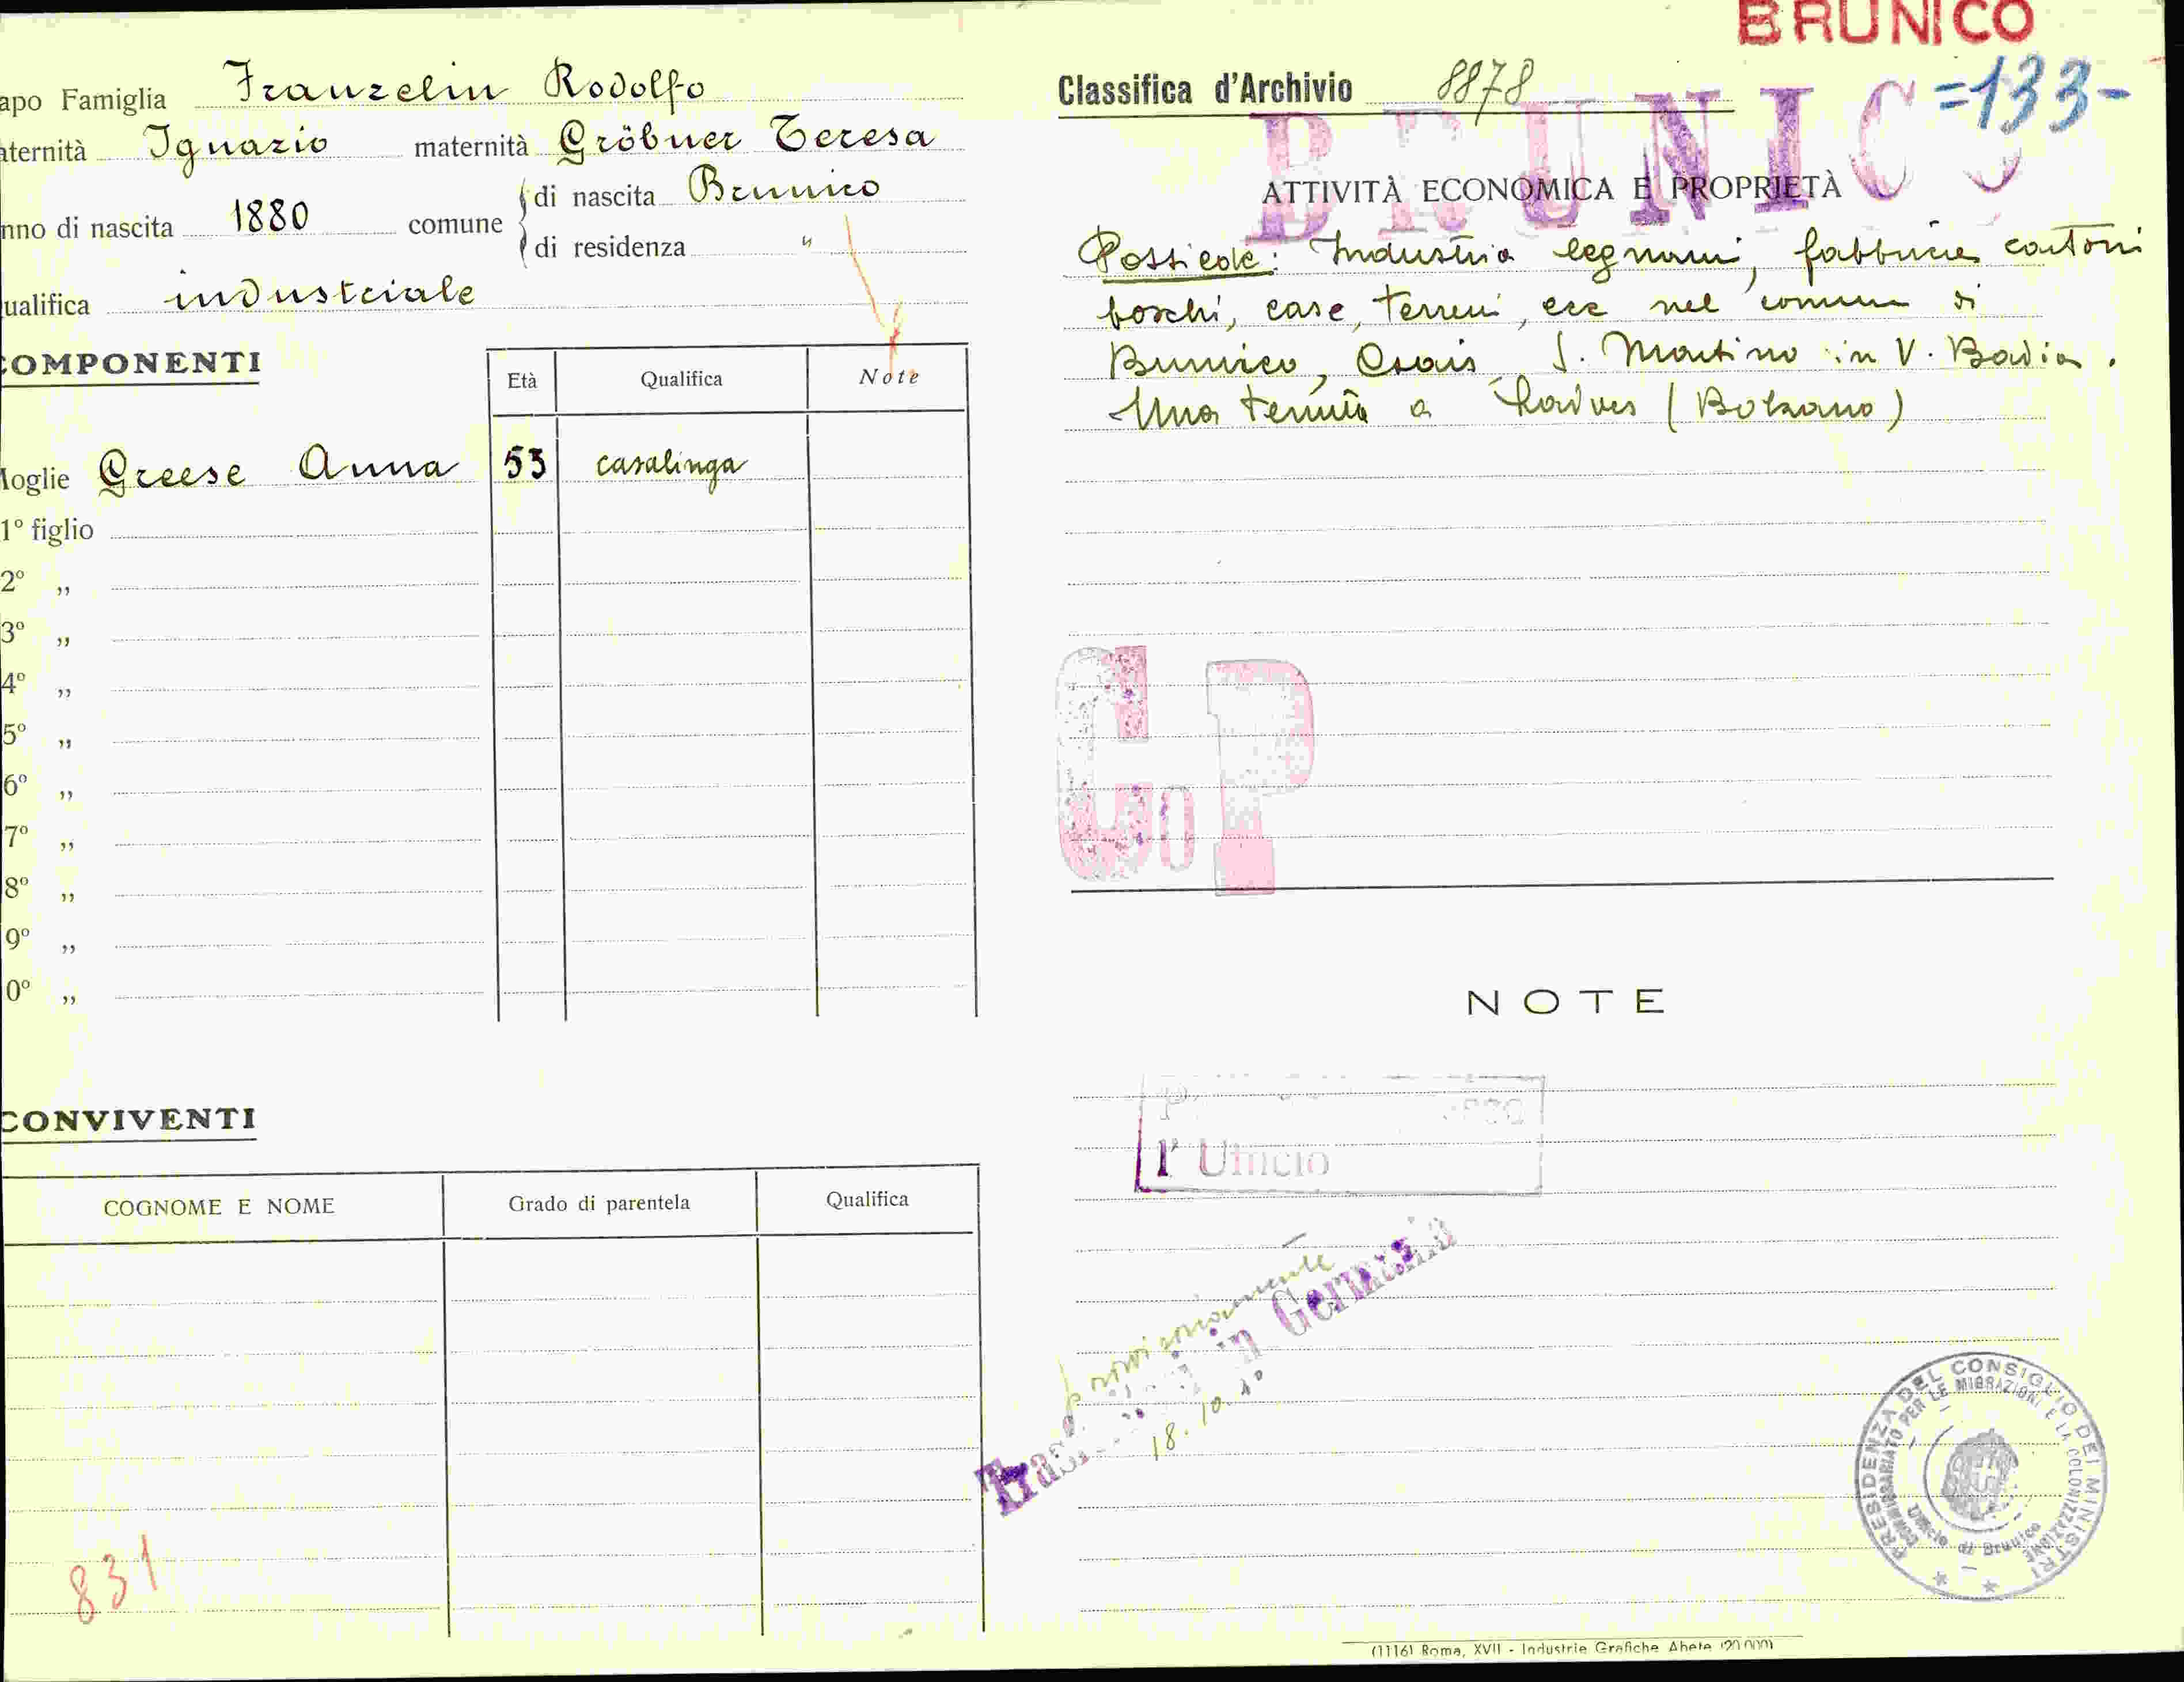 BRUNICO
apo Famiglia Franzelin Rodolfo
aternità Ignazio maternità Gröbner Teresa
nno di nascita 1880 comune di nascita Brunico
di residenza "
ualifica industriale
COMPONENTI
Età Qualifica Note
Moglie Greese Anna 53 casalinga
1º figlio
2º „
3º „
4º „
5º „
6º „
7º „
8º „
9º „
0º „
CONVIVENTI
COGNOME E NOME Grado di parentela Qualifica
831
Classifica d'Archivio 8878
=133-
BRUNICO
ATTIVITÀ ECONOMICA E PROPRIETÀ
Possiede: Industria legnami, fabbrica cartoni
boschi, case, terreni, ecc nel comune di
Brunico, S. Martino in V. Badia.
Una tenuta a Laives (Bolzano)
NOTE
l'Ufficio
provvisoriamente
in Germania
18.10.40
PRESIDENZA DEL CONSIGLIO DEI MINISTRI
COMMISSARIATO PER LE MIGRAZIONI E LA COLONIZZAZIONE
Ufficio di Brunico
(1116) Roma, XVII - Industrie Grafiche Abete (20.000)